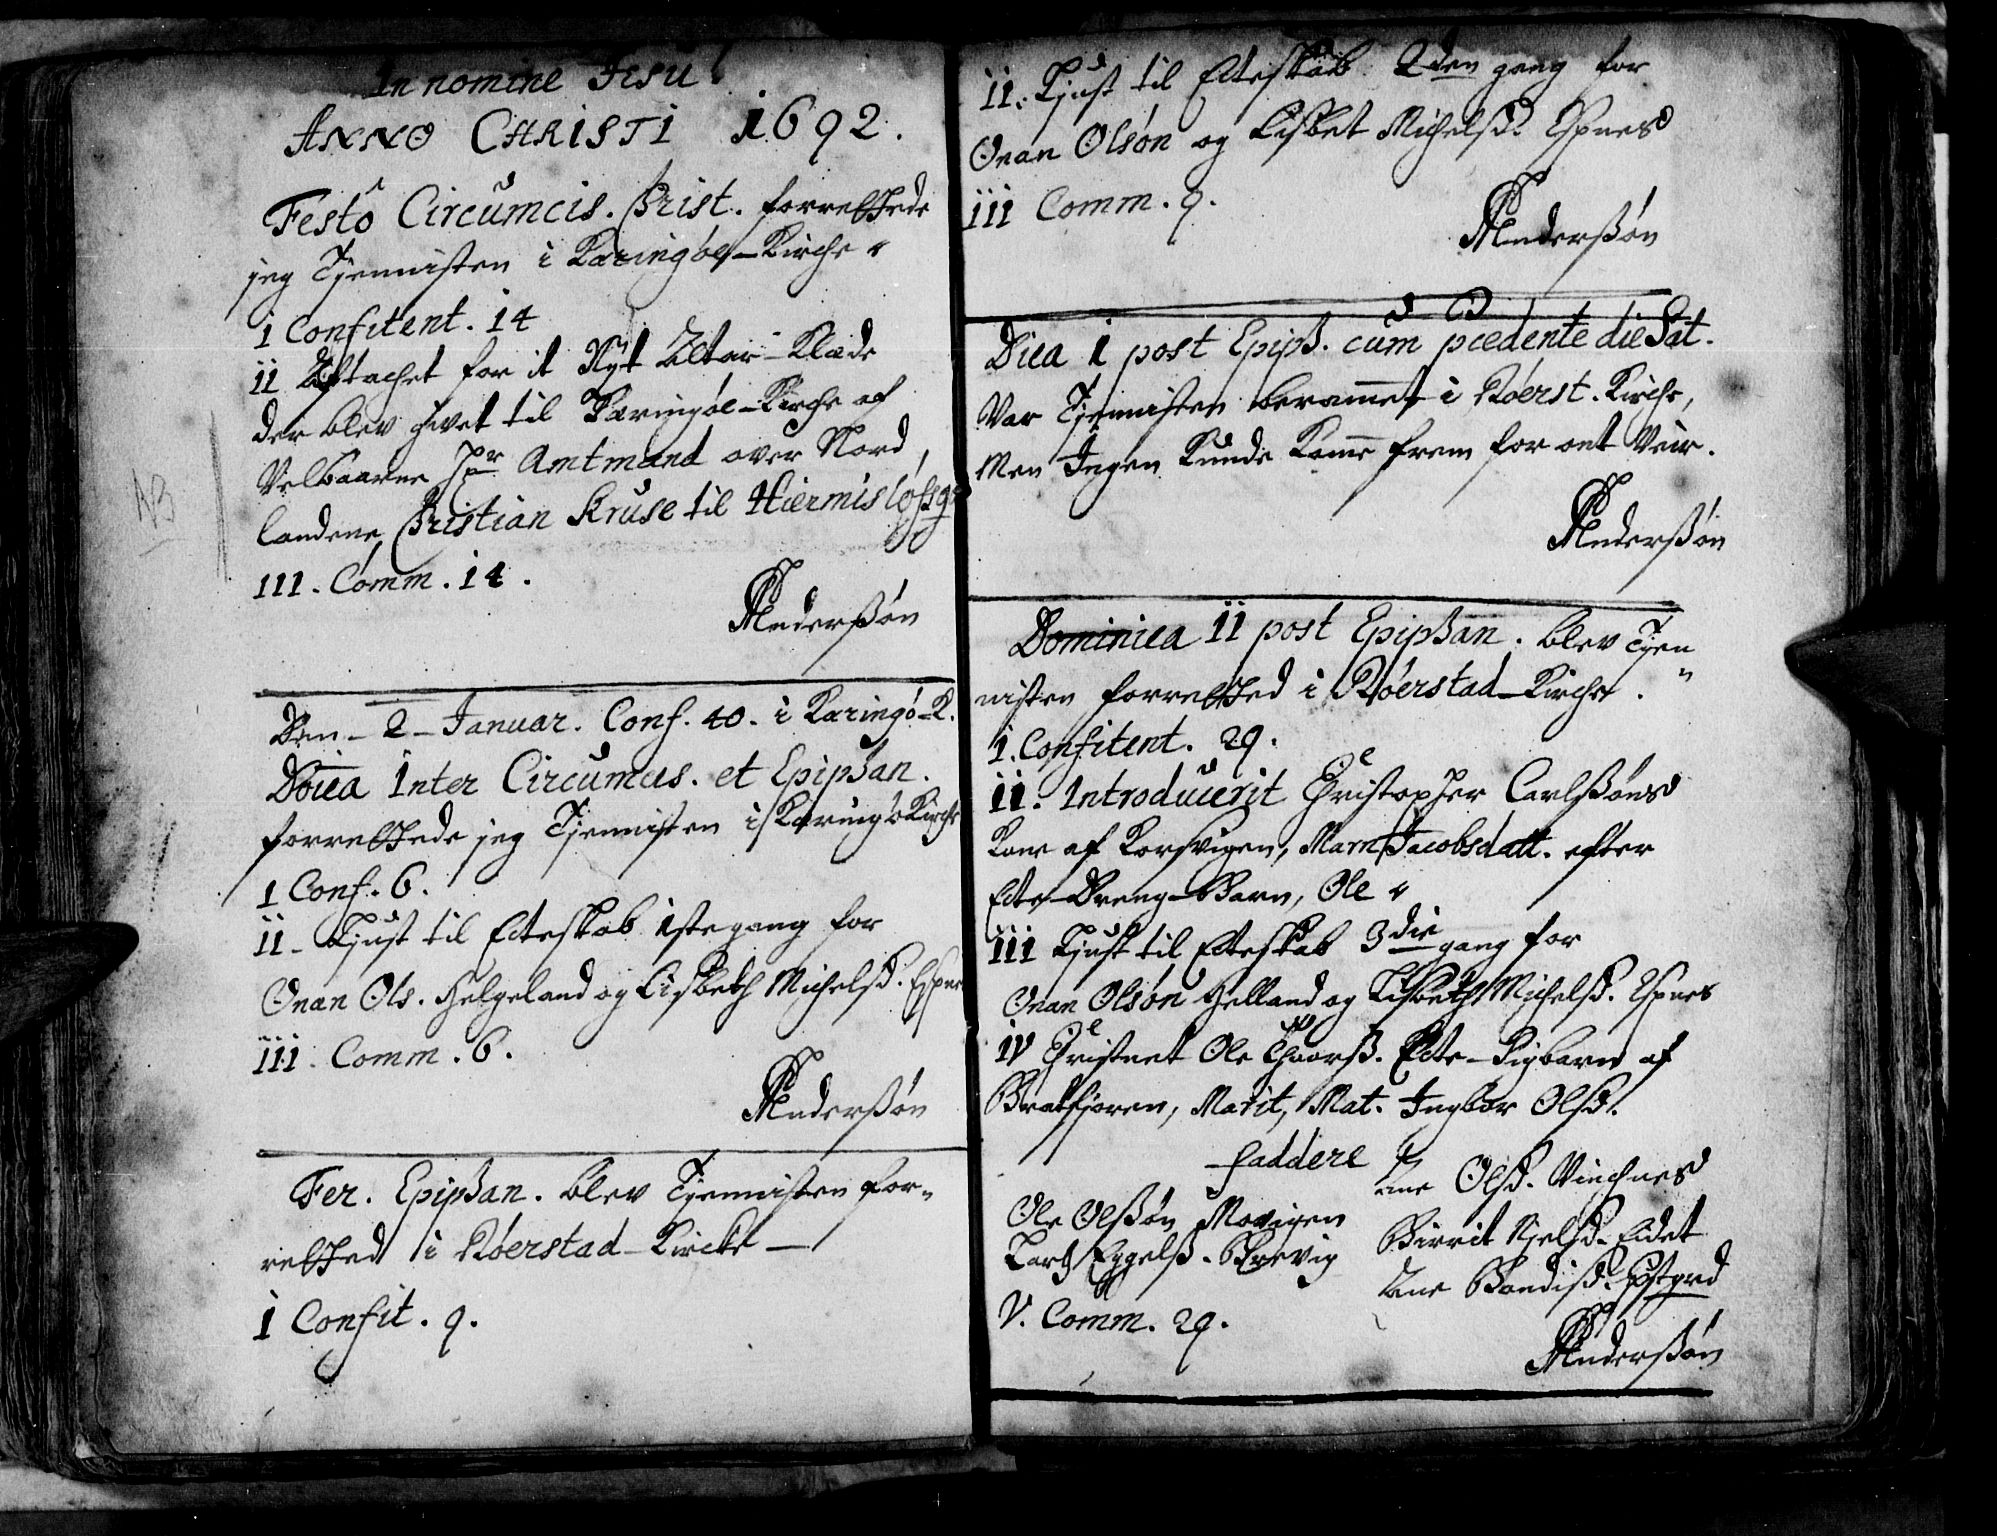 In nomine Jesu!
ANNO CHRISTI 1692.
Festô Circumcis. Christ. forrettede
jeg Tjennisten i Kæringøe-Kirche
i Confitent. 14
ii Aftachet for it Nyt Altar-Klæde
der blev givet til Kæringøe-Kirche af
Velbaarne Hr Amtmand over Nord,
landene, Christian Kruse til Hiermisløfsg
III. Comm. 14.
Anderssøn
Den-2-Januar. Conf. 40. i Kæringø-K.
Doica Inter Circumcis. et Epiphan.
forrettede jeg Tjennisten i Kæringø Kirche
1 Conf. 6.
ii- Liust til Ecteskab istegang for
Onan Ols. Helgeland og Lisbeth Michelsd. Espnes
iii. Comm. 6.
Anderssøn
Fer. Epiphan. blev Tjennisten for-
rettet i Røerstad-Kirche-
i Confit. 9.
ii. Liust til Ecteskab 2den gang for
Onan Olsøn og Lisbet Michelsd. Espnes
iii Comm. 9.
Anderssøn
Dica i post Epiph. cum pcedente die Sat.
Var Tjennisten beramet i Røerst. Kirche,
Men Ingen Kunde Kome frem for ont Veir.
Anderssøn
Dominica ii post Epiphan. blev Tjen
nisten forrettet i Røerstad-Kirche.
i. Confitent. 29.
ii. Introducerit Christopher Carlssøns
Kone af Korsvigen, Marn Jacobsdatt. efter
Ecte-Dreng-Barn, Ole
iii Liust til Ecteskab 3die gang for
Onan Olsøn Helland og Lisbeth Michelsd. Espnes
iv Christnet Ole Thaarss. Ecte-Pigbarn af
Bratfjoren, Marit, Mat. Ingbor Olsd.
Faddere
Ane Olsd. Vinchnes
Ole Olssøn Movigen
Birrit Nielsd. Eidet
Lars Eggelss. Brevig
Ane Bondisd.
V. Comm. 29.
Anderssøn